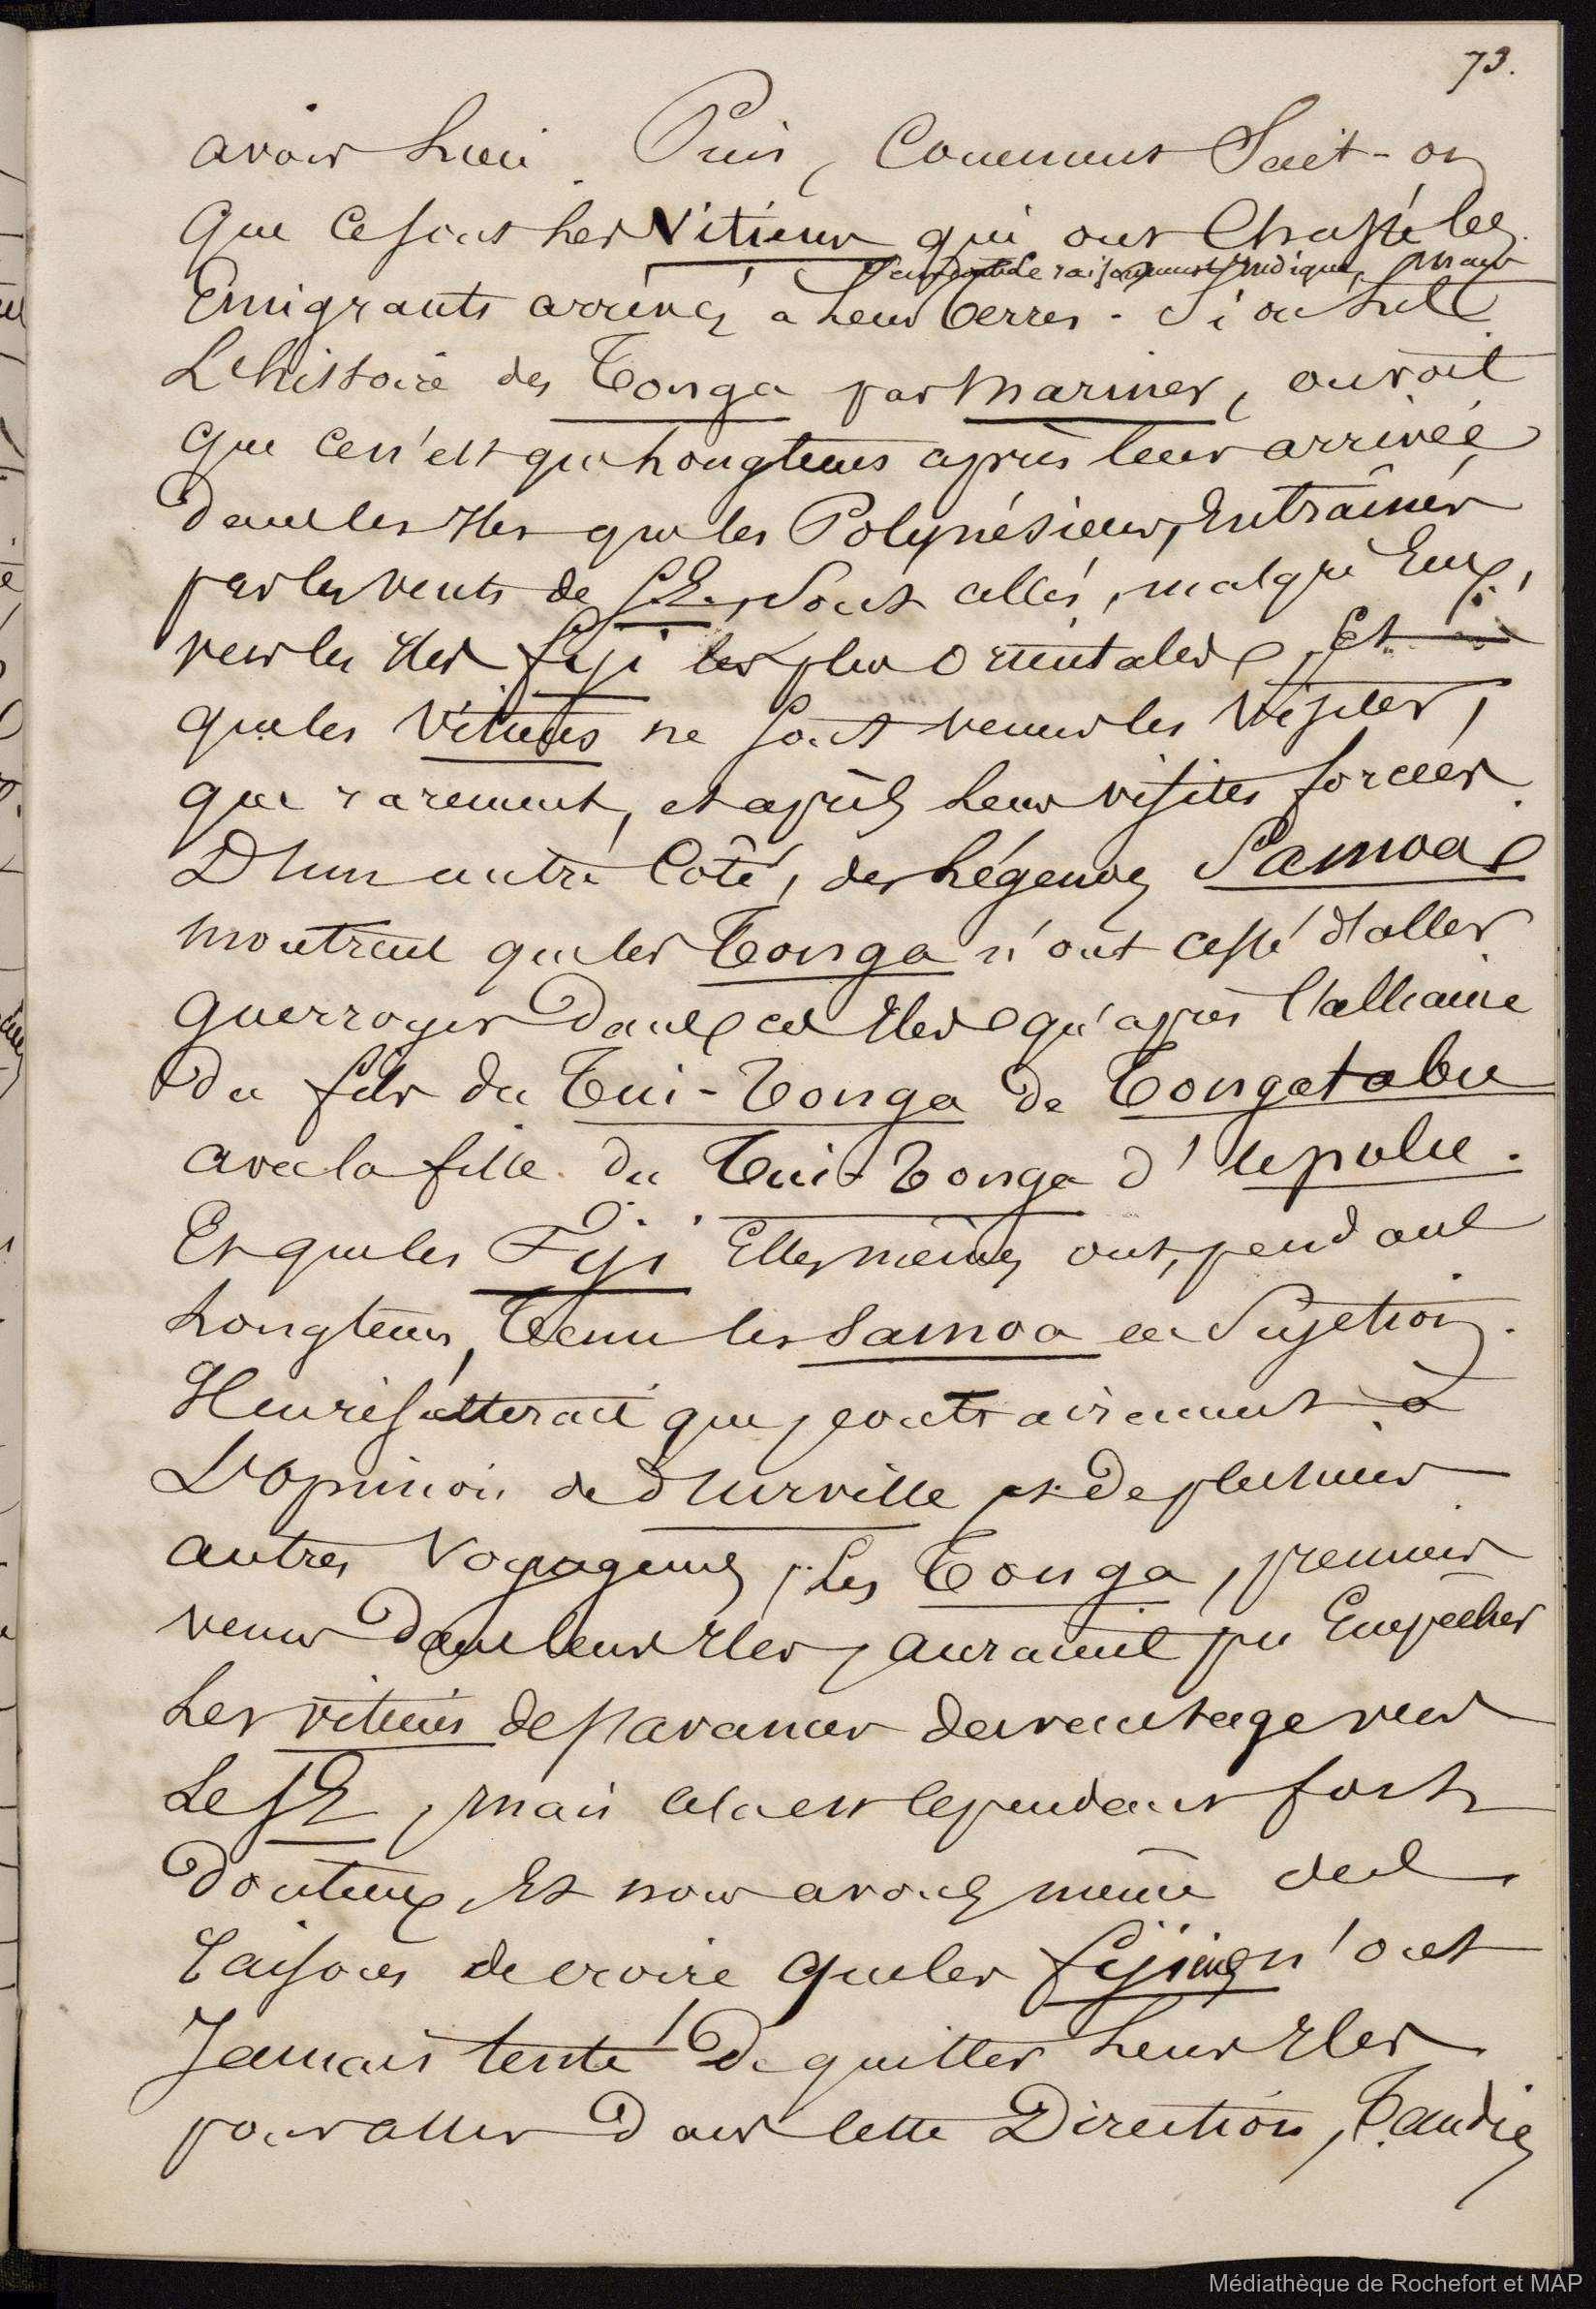 73.
avoir lieu. Puis, Comment Sait-on
Que ce sont les Vitiens qui ont Chassé les
Sans doute le raisonnement l'indique, mais
Emigrants arrivés à leurs terres. Si on lit
L'histoire des Tonga par Mariner, on voit
que ce n'est que longtems après leur arrivée
Dans les Iles que les Polynésiens, Entraînés
par les vents de S.E. Sont allés, malgré Eux,
vers les Iles Fiji les plus Orientales, Et
que les Vitiens ne sont venus les visiter,
que rarement, et après leurs visites forcées.
D'un autre Côté, des Légendes Samoa
montrent que les Tonga n'ont cessé d'aller
guerroyer Dans ces Iles qu'après l'alliance
Du fils du Tui-Tonga de Tongatabu
avec la fille du Tui-Tonga d'Upolu.
Et que les Fiji Elles mêmes ont, pendant
Longtems, Tenu les Samoa en Sujetion.
Il en résulterait que, contrairement à
L'opinion de d'Urville et de plusieurs
autres Voyageurs, Les Tonga, premiers
venus Dans leurs Iles, auraient pu Empêcher
Les vitiens de s'avancer davantage vers
Le SE, mais cela est cependant fort
Douteux, Et nous avons même des
raisons de croire que les fijiens n'ont
Jamais tenté De quitter leurs Iles
pour aller Dans cette Direction, Tandis
Médiathèque de Rochefort et MAP